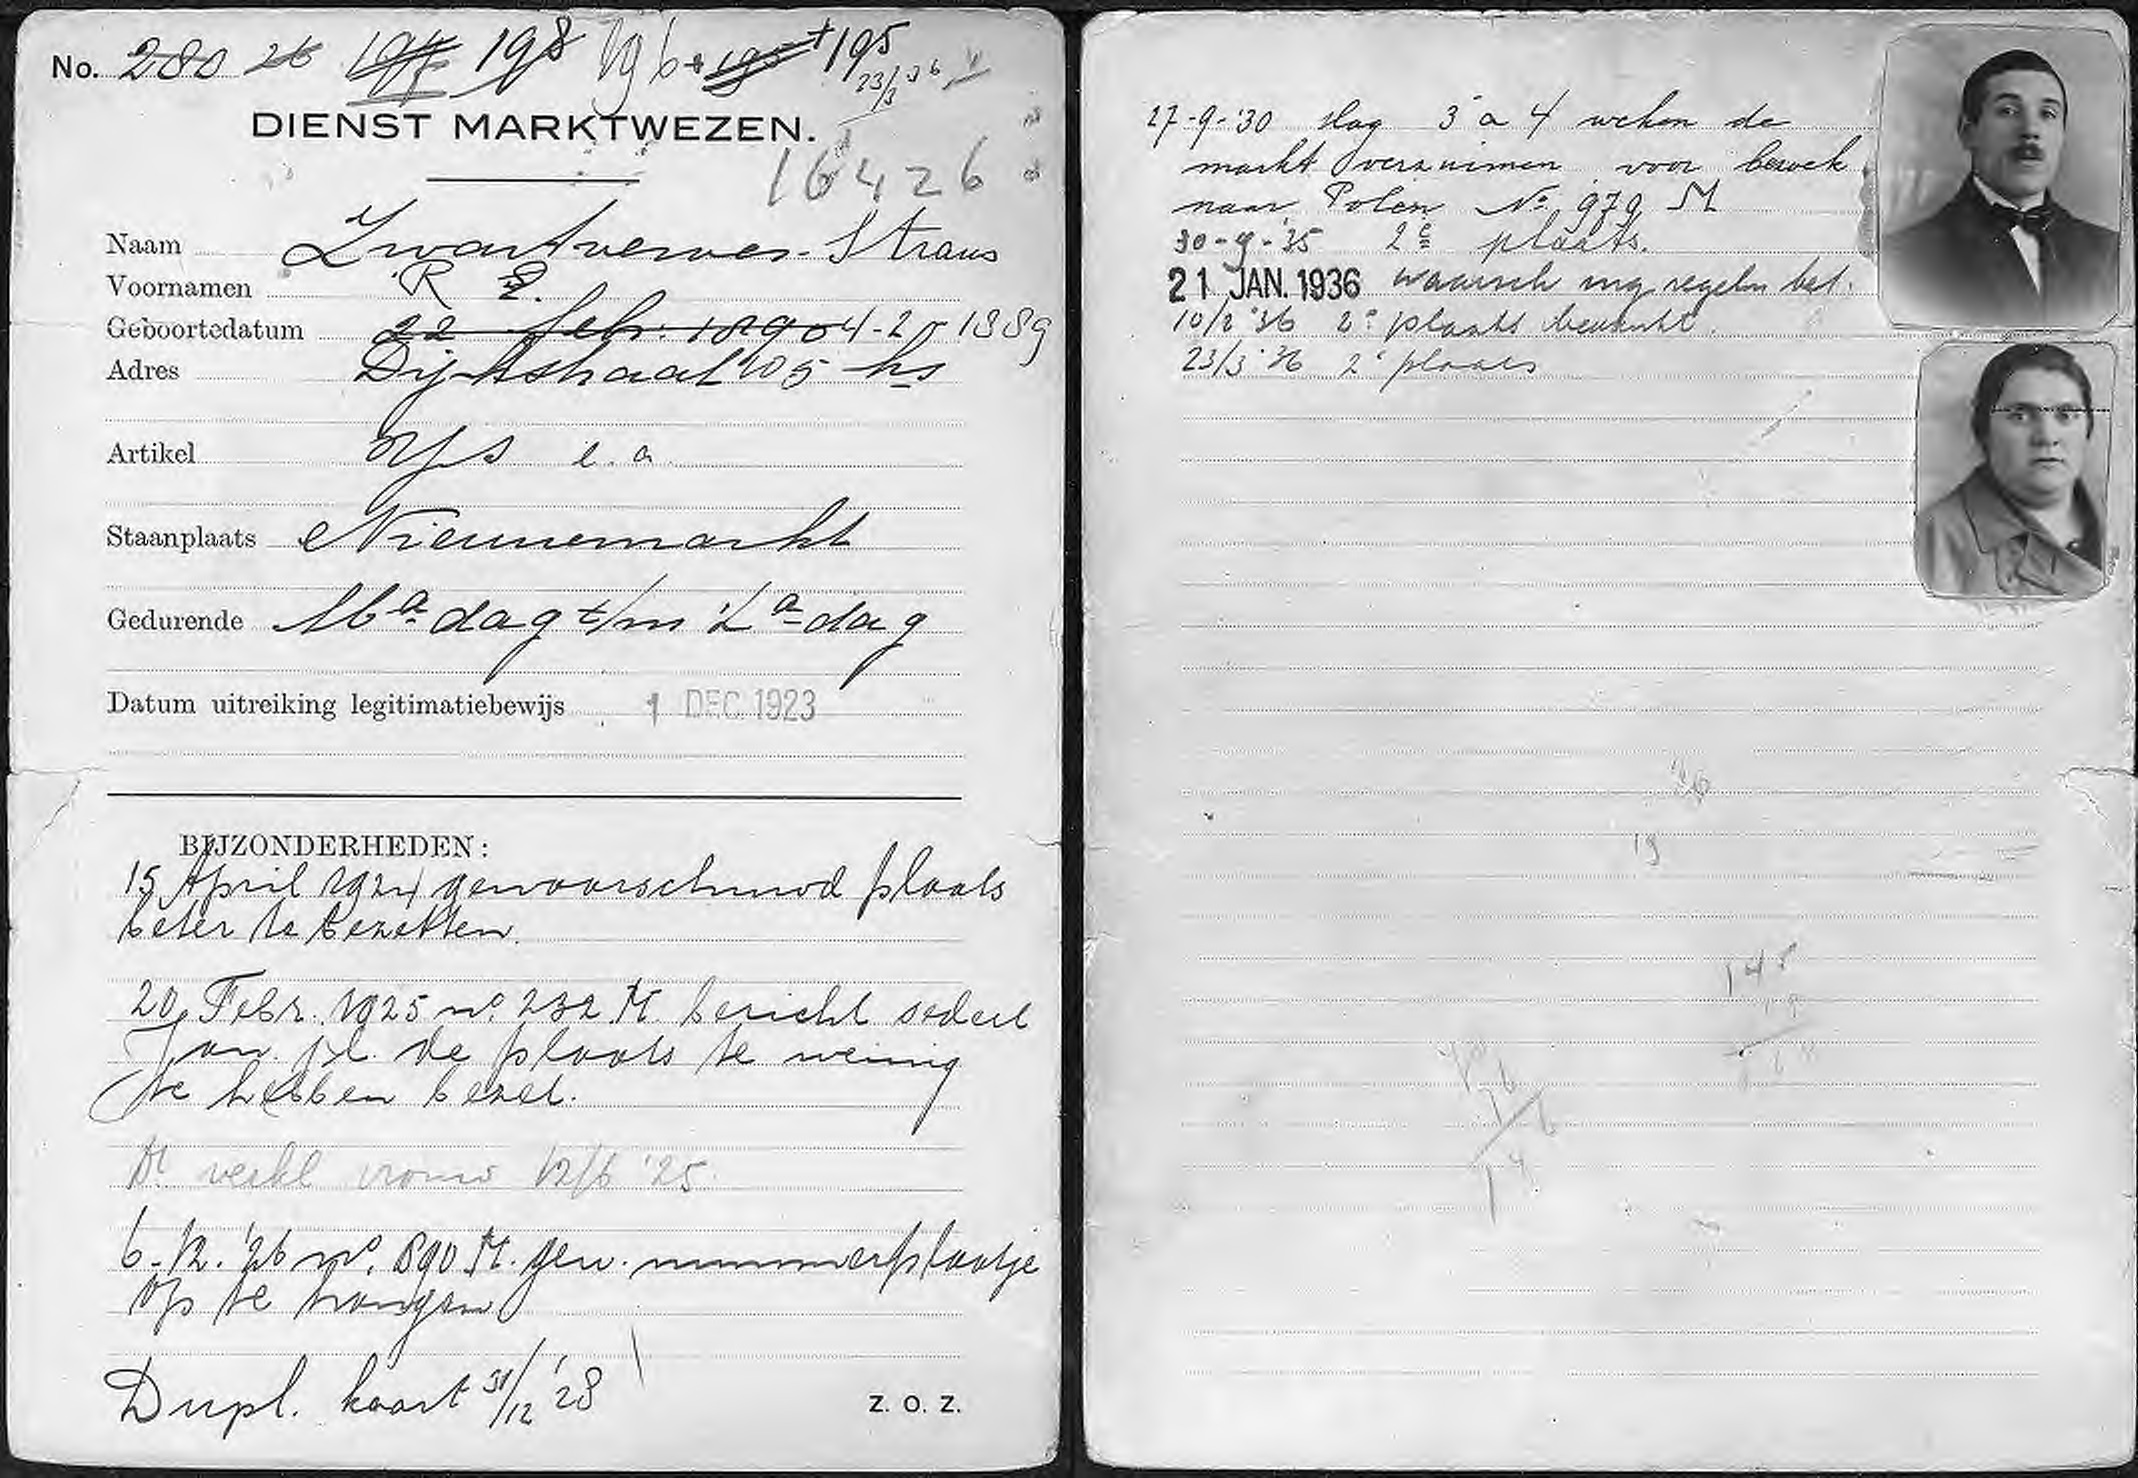 No. 280 26 197 198 196 + 195 + 195
23/3 36
DIENST MARKTWEZEN.
16426
Naam Zwartverver-Straus
Voornamen R E.
Geboortedatum 22 febr. 1890 4-2- 1889
Adres Dijkstraat 105 hs
Artikel ijs e.a.
Staanplaats Nieuwmarkt
Gedurende Ma dag t/m Za dag
Datum uitreiking legitimatiebewijs 1 DEC 1923
BIJZONDERHEDEN:
15 April 1924 gewaarschuwd plaats
beter te bezetten.
20 Febr. 1925 no. 232 M. bericht sedert
Jan. j.l. de plaats te weinig
te hebben bezet.
vrouw 12/6 '25.
6-12-'26 no. 890 M. gew. nummerplaatje
op te hangen
Dupl. kaart 31/12 '28
Z. O. Z.
27-9-'30 3 a 4 weken de
markt verzuimen voor bezoek
naar Polen No. 979 M
30-9-'35 2e plaats.
21 JAN. 1936 waarsch regelm bet.
10/2 '36 2e plaats
23/3 '36 2e plaats
26
19
148